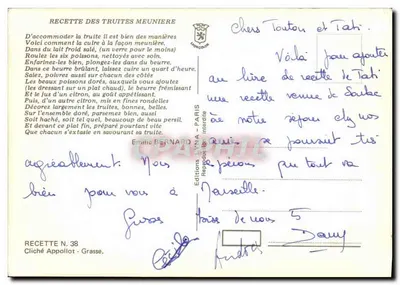 RECETTE DES TRUITES MEUNIERE
D'accommoder la truite il est bien des manières
Voici comment la cuire à la façon meunière.
Dans du lait froid salé, (un verre pour le moins)
Roulez les six poissons, nettoyés avec soin.
Enfarinez-les bien, plongez-les dans du beurre.
Dans ce beurre brûlant, laissez cuire un quart d'heure.
Salez, poivrez aussi sur chacun des côtés
Les beaux poissons dorés, auxquels vous ajoutez
(les dressant sur un plat chaud), le beurre frémissant
Et le jus d'un citron, au goût appétissant.
Puis, d'un autre citron, mis en fines rondelles
Décorez largement les truites, bonnes, belles.
Sur l'ensemble doré, parsemez bien, aussi
Soit haché, soit tel quel, beaucoup de beau persil.
Et devant ce plat fin, préparé pourtant vite
Que chacun s'extasie en savourant sa truite.
RECETTE N. 38
Cliché Appollot - Grasse.
Editions LYNA - PARIS
Reproduction interdite
Chers Tonton et Tati.
Voilà pour ajouter
au livre de recette de Tati
une recette venue de
à notre séjour chez nos
amis se poursuit très
agréablement. Nous espérons que tout va
bien pour vous à Marseille.
Gros de nous 5
Cécile
Dany